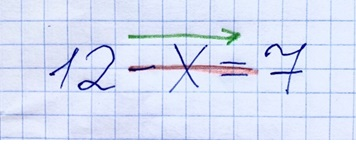 12 - x = 7